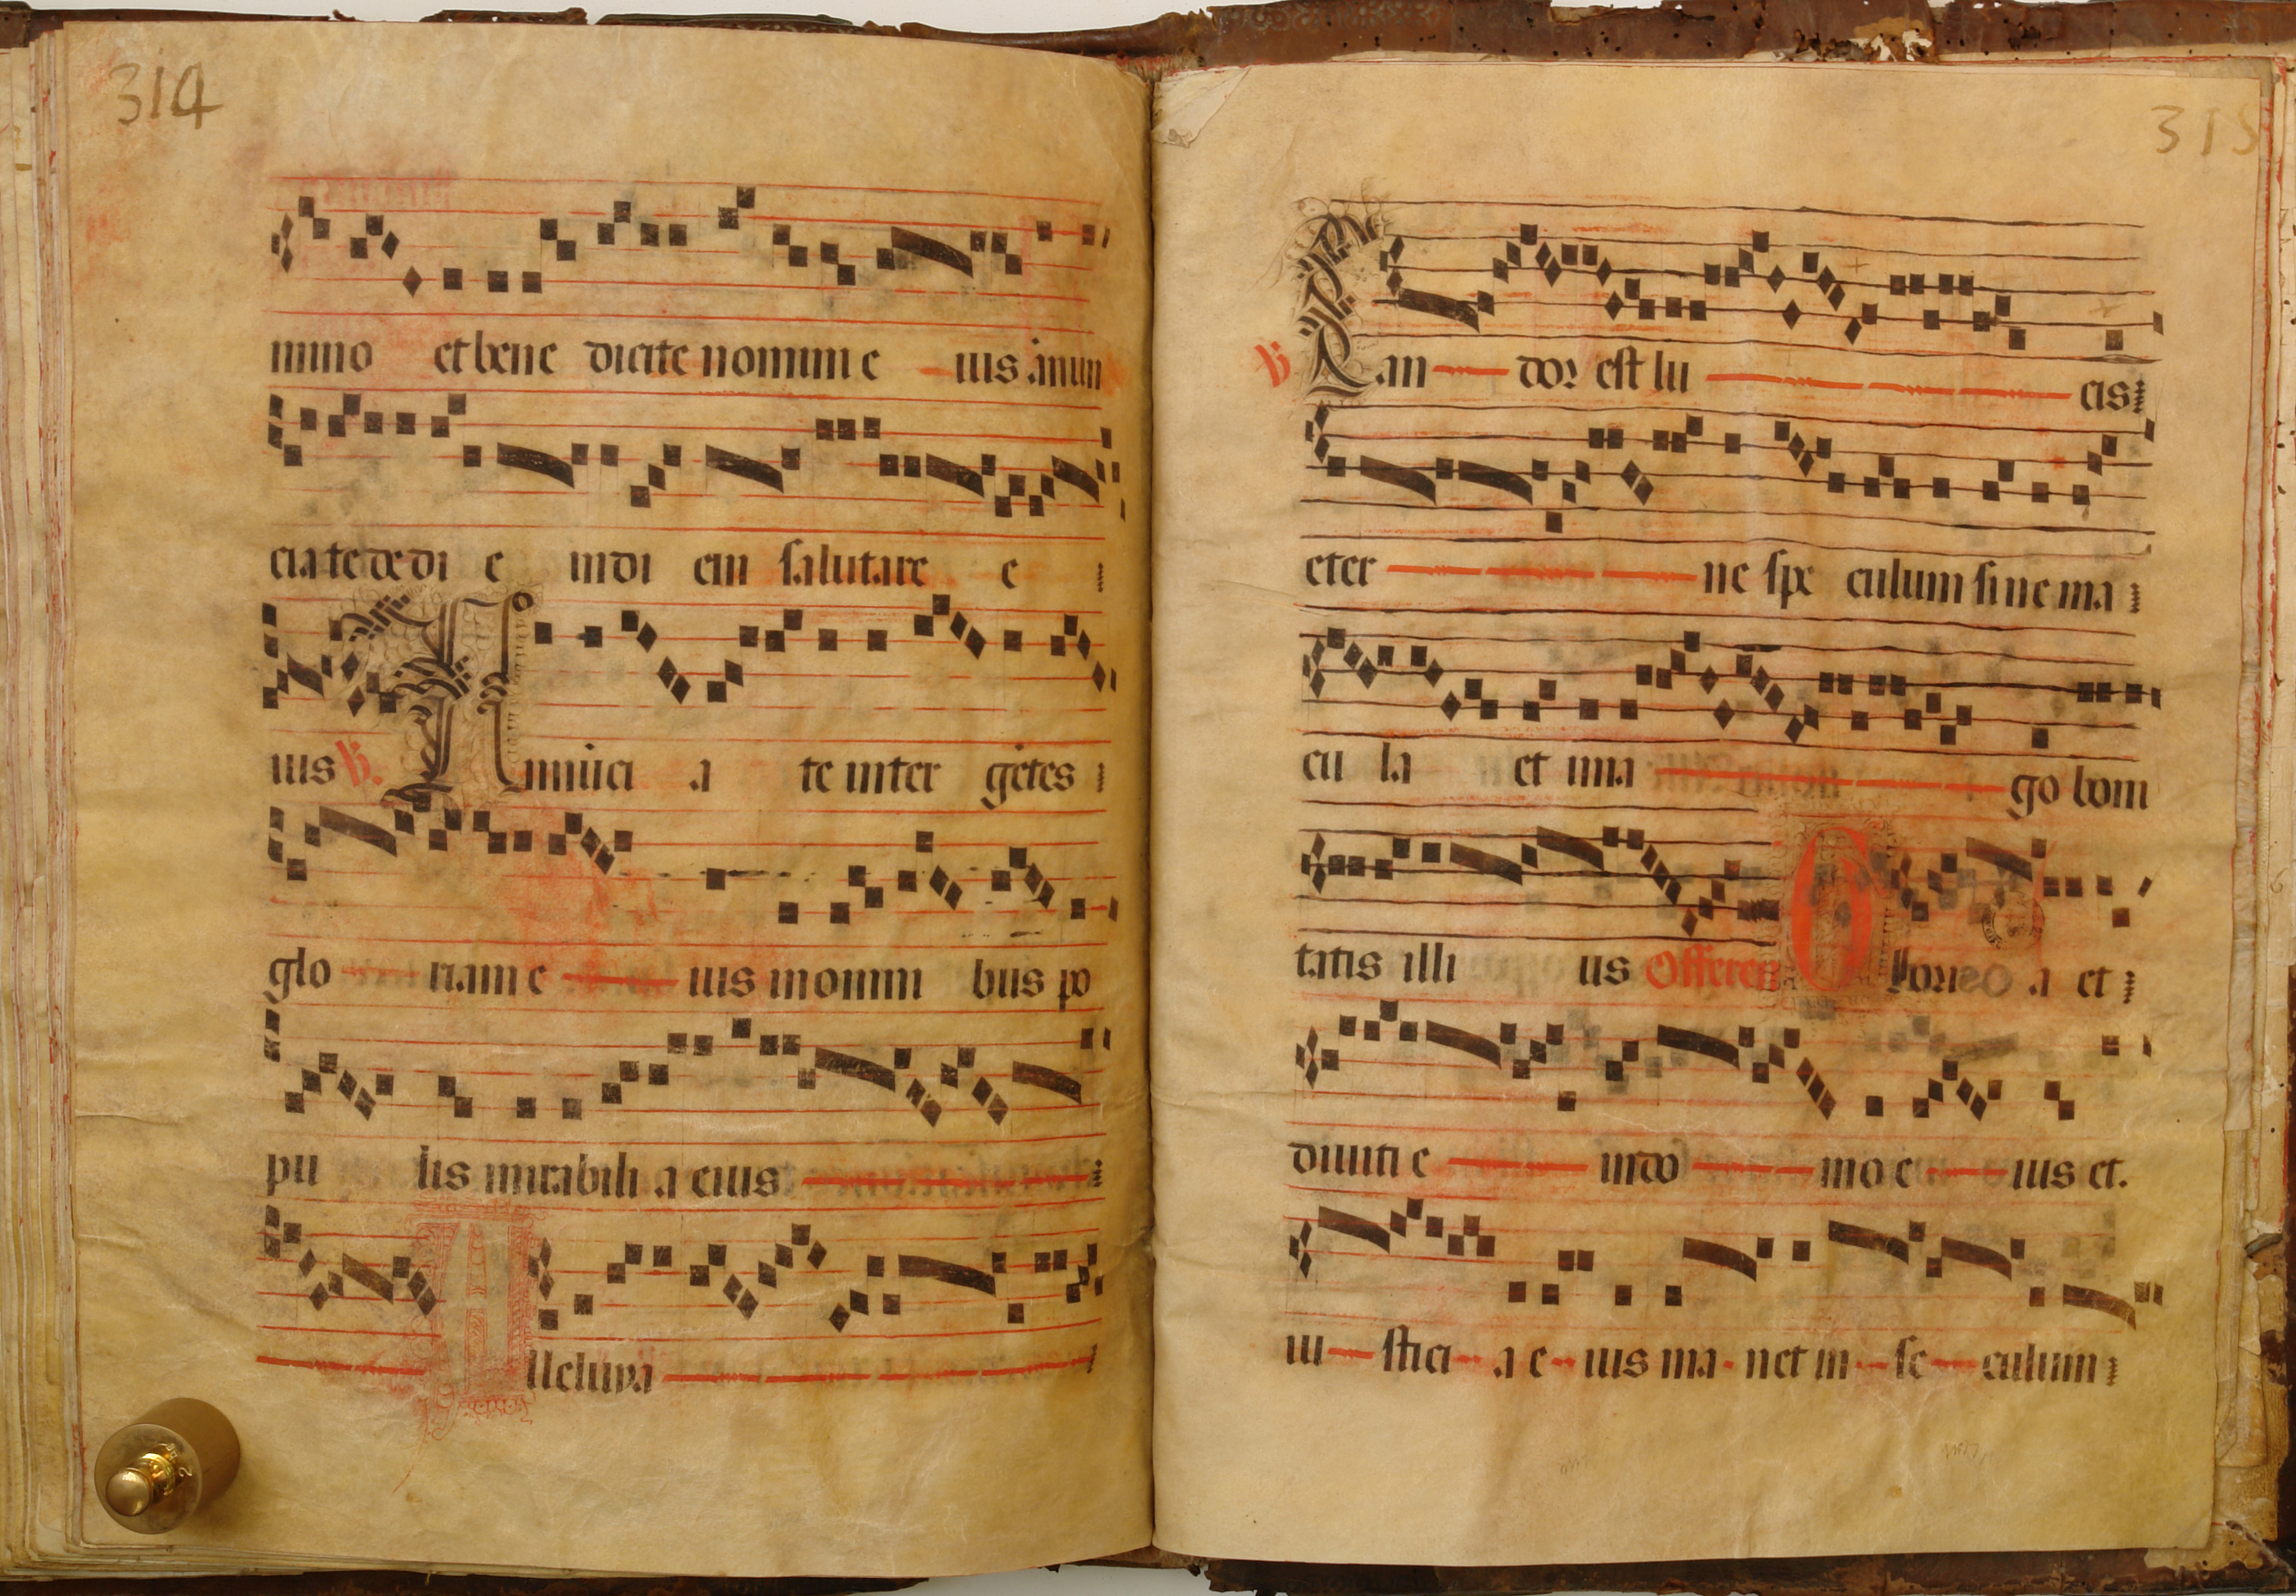 314
mino et bene dicite nomini e ius anun
ciate de di e in di em salutare e
ius ℣. Annūci a te inter gētes
glo riam e ius in omni bus po
pu lis mirabili a eius
Alleluya
315
℣ Can dor est lu cis
eter ne spe culum sine ma
cu la et ima go boni
tatis illi us Offeren Glori a et
diuiti e in do mo e ius et.
iu stici a e ius ma net in se culum